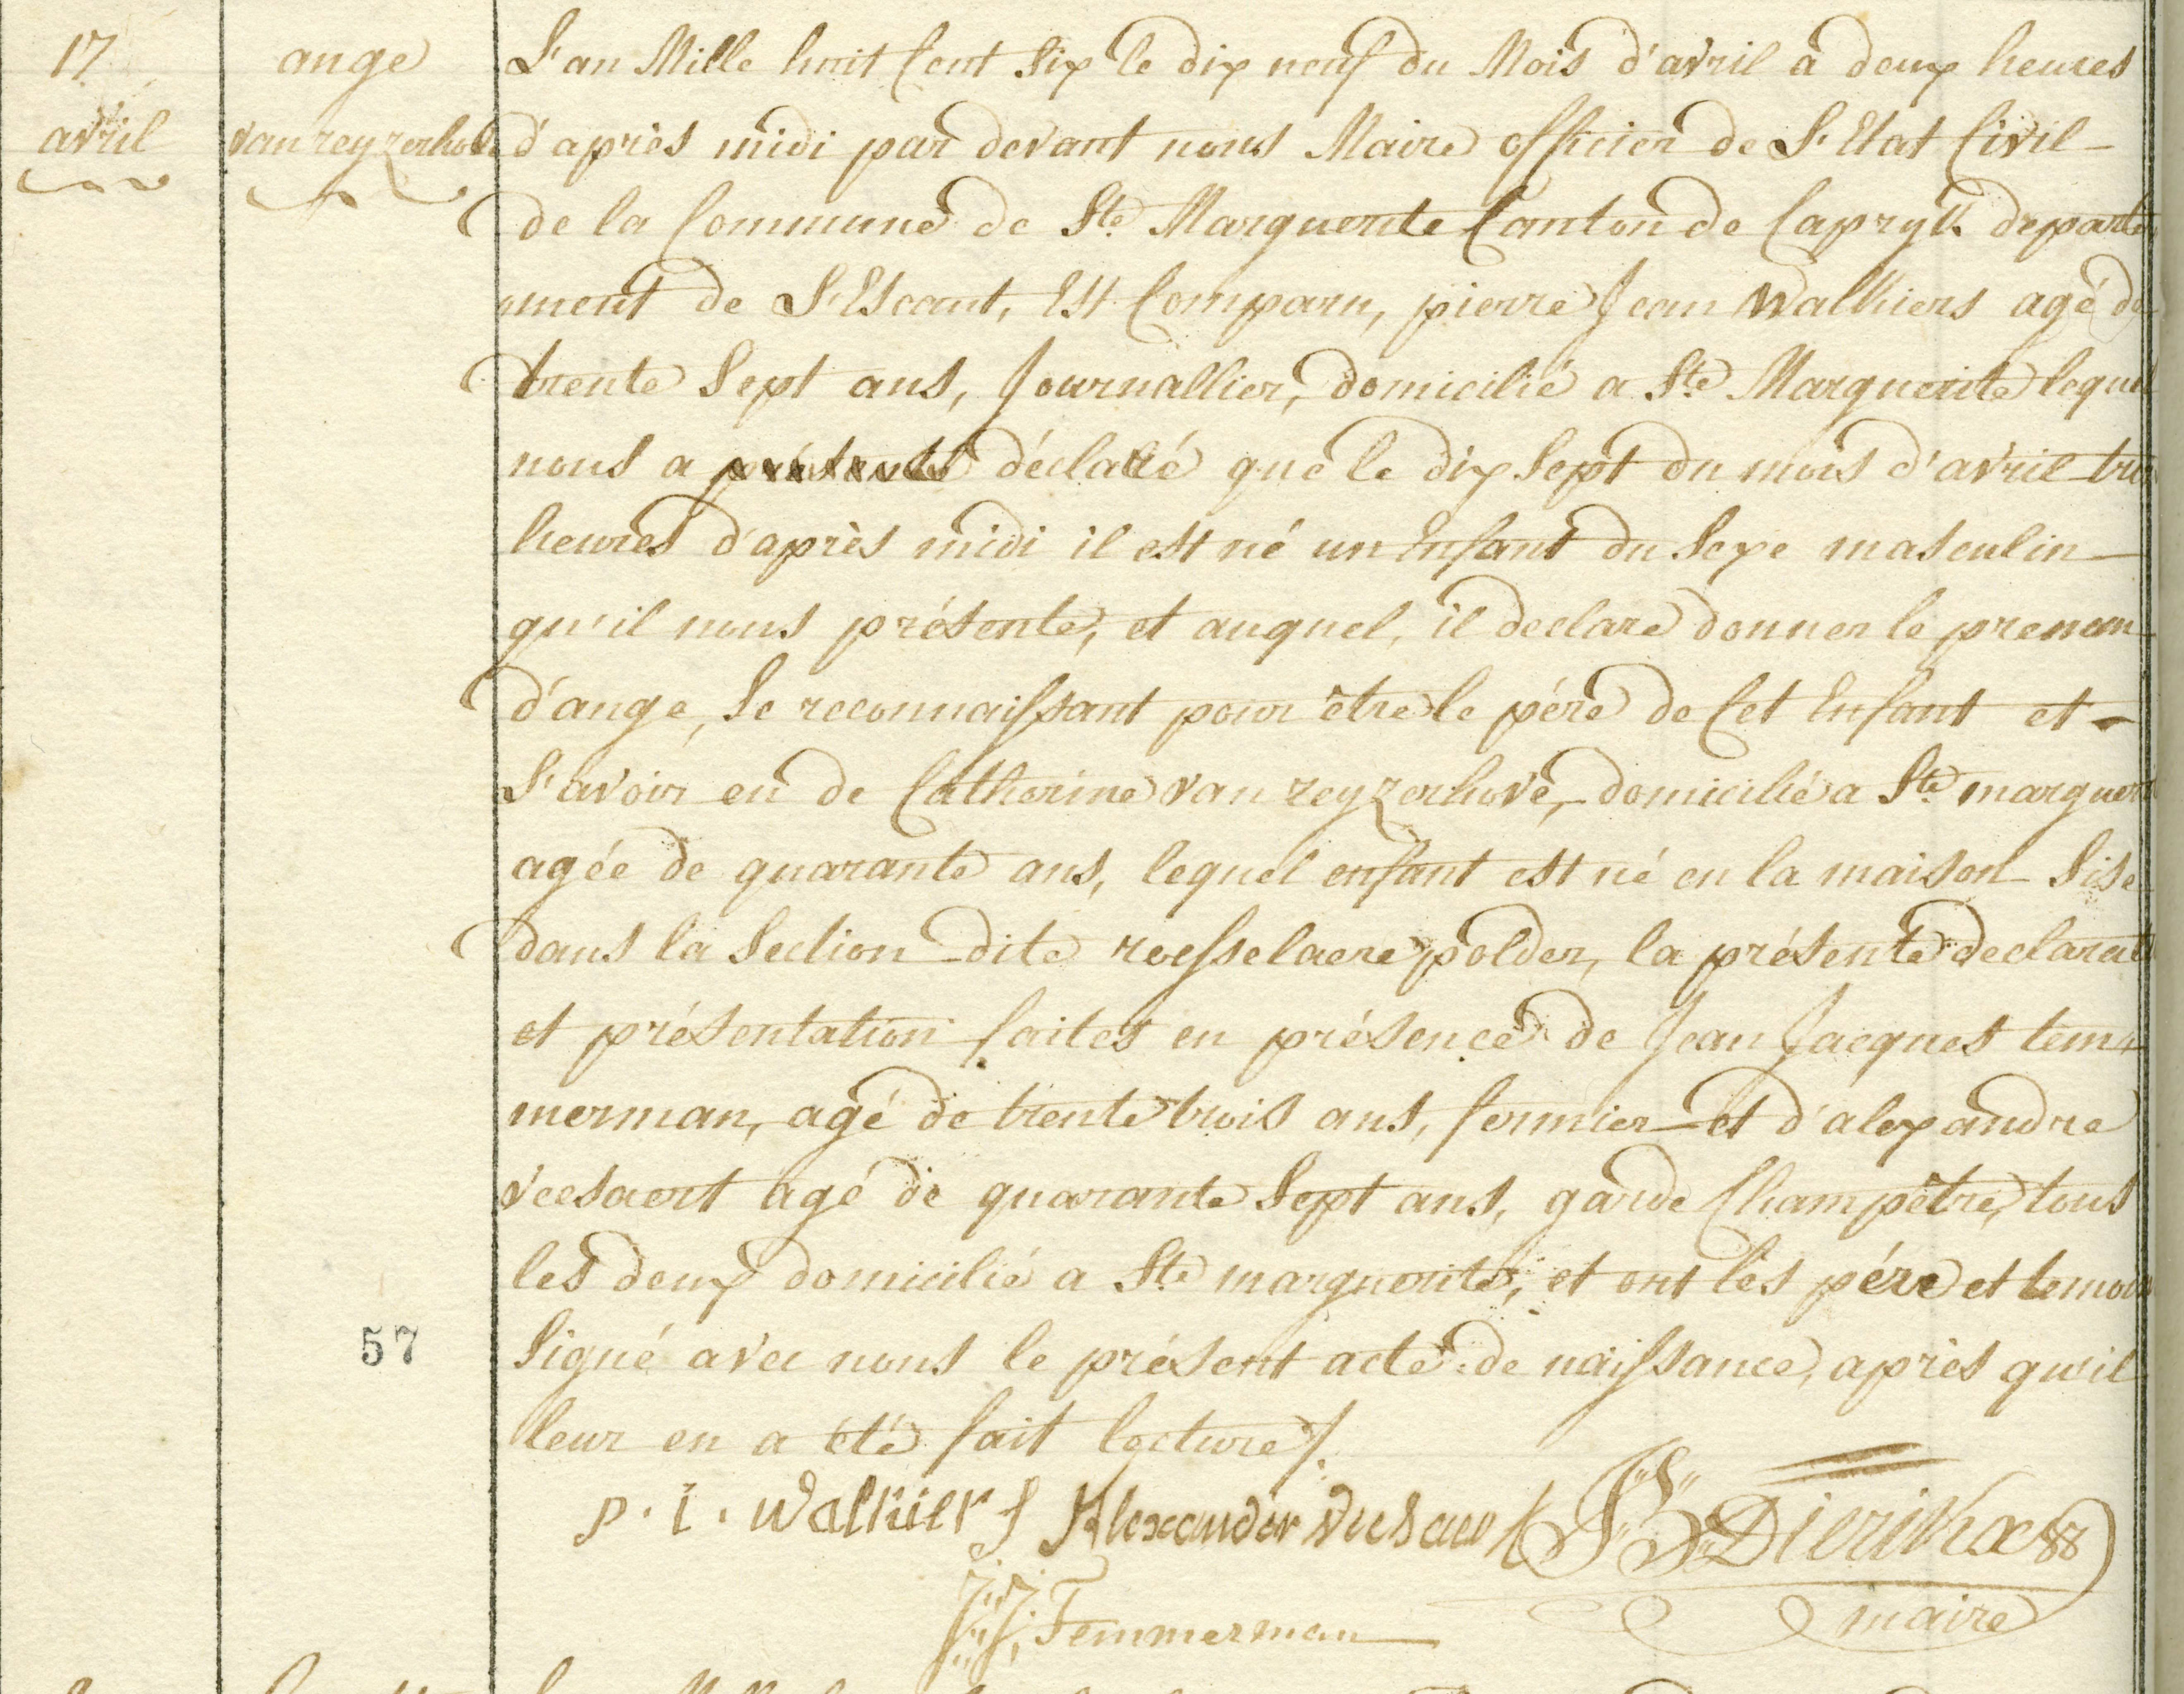 17 avril
ange van reyzerhove
L'an Mille huit Cent Six le dix neuf du Mois d'avril à deux heures
d'après midi par devant nous Maire officier de L'Etat Civil
de la Commune de Ste Marguerite Canton de Capryk departe
ment de L'Escaut, Est Comparu, pierre Jean Walhiers agé de
trente Sept ans, Journallier, domicilié a Ste Marguerite lequel
nous a déclaré que le dix Sept du mois d'avril
heures d'après midi il est né un Enfant du Sexe masculin
qu'il nous présente, et auquel, il declare donner le prenom
d'ange, Se reconnaissant pour être le pére de Cet Enfant et
L'avoir eu de Catherine van reyzerhove, domicilié a Ste marguer
agée de quarante ans, lequel enfant est né en la maison Sise
dans la Section dite roesselaere polder, la présente declarat
et présentation faites en présence de Jean Jacques tem
merman, agé de trente trois ans, fermier et d'alexandre
veesaert agé de quarante Sept ans, garde Champêtre, tous
les deux domicilié a Ste marguerite, et ont les pére et temoin
Signé avec nous le présent acte de naissance, après qu'il
57
leur en a été fait lecture
p. i. Walhiers Alexander Dierikx
J. J. Temmerman maire